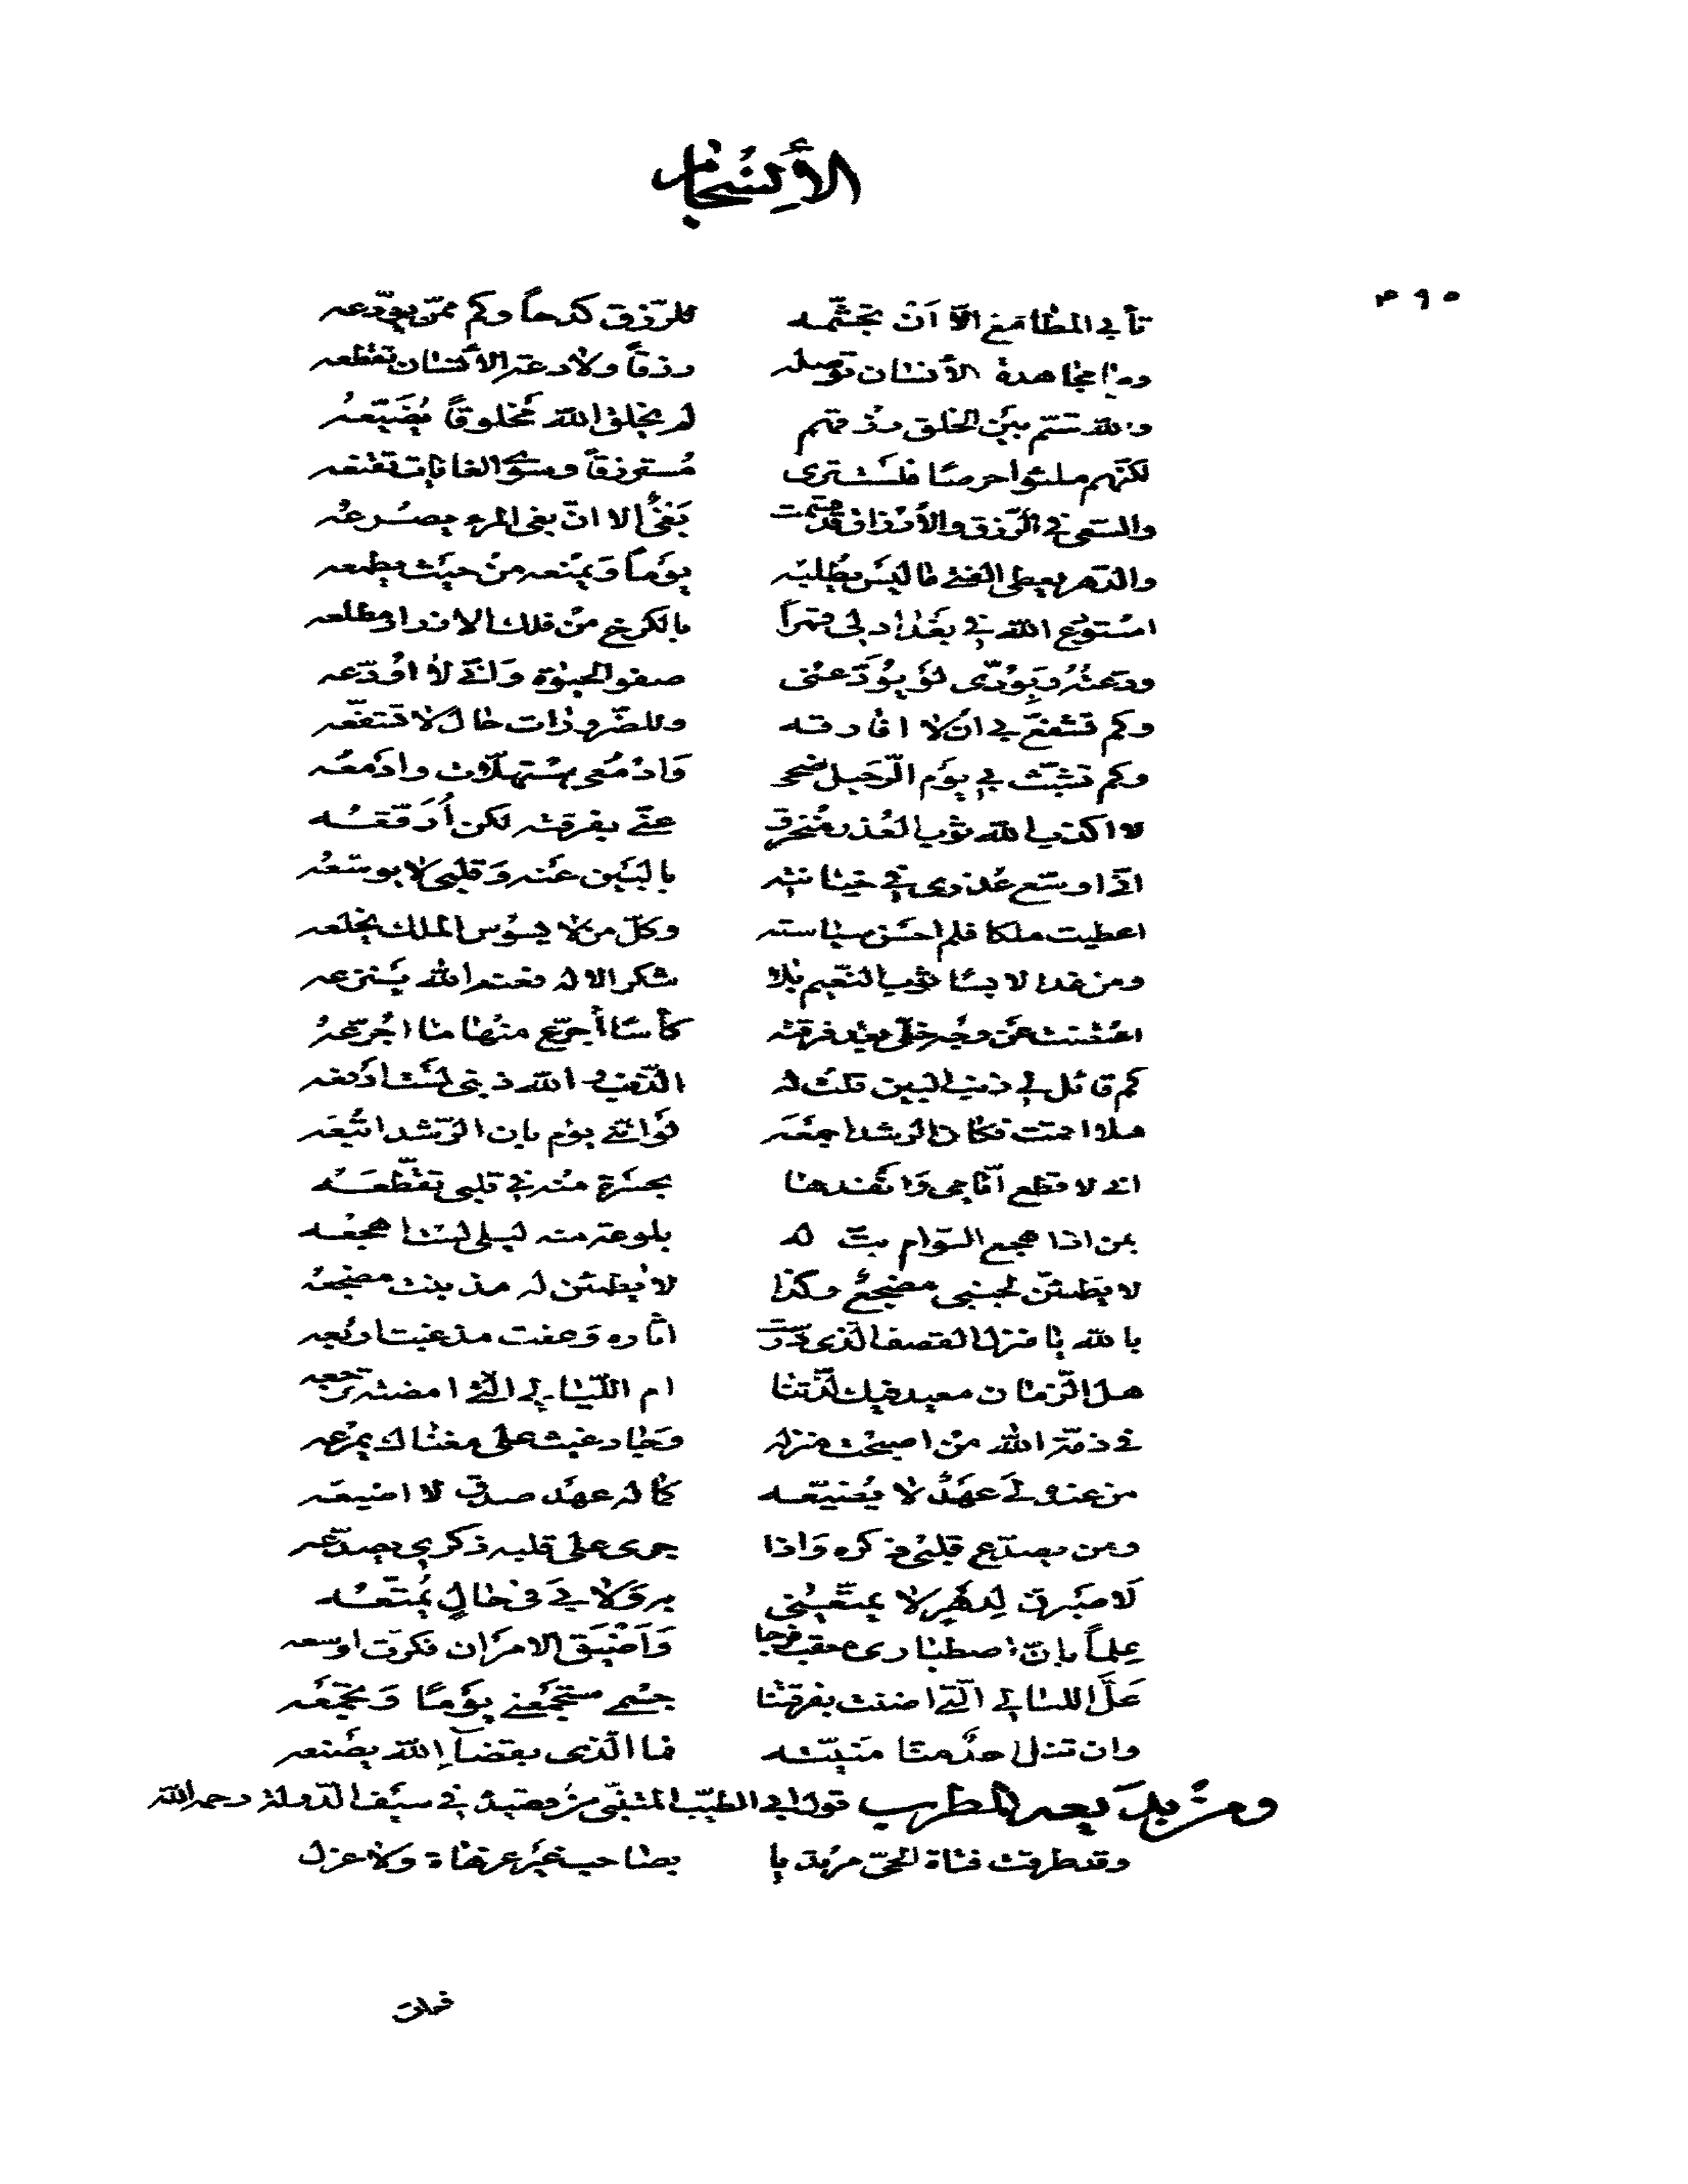 الأنسجام
٤٩٥
تأبى المطامع الّا اَنْ تجشّمه للرّزق كدحاً وكم ممّن يودّعه
وما مجاهدة الأنسان توصله رزقاً ولا دعة الأنسان تقطعه
والله قسّم بين الخلق رزقهم لم يخلق الله مخلوقاً يُضَيّعهُ
لكنّهم ملئوا حرصًا فلست ترى مُسترزقاً وسوى الغايات تقنعه
والسعى فى الرّزق والأرزاق قد قسمت بَغىٌ الا انّ بغى المرء يصرعُه
والدّهر يعطى الفتى ما ليس يطلبه يوماً وَيمنعه منْ حيث يطمعه
استودع الله فى بغداد لى قمراً بالكرخ منْ فلك الازرار مطلعه
ودّعتُهُ وَبِوُدّى لوْ يوَدّعنى صفو الحيوة وَانّى لا اودّعه
وكم تشفّع بى انْ لا افارقه وللضّرورات حال لا تشفّعه
وكم تشبّث بى يوْم الرّحيل ضحى وَادمُعى مستهلّات وادمعُه
لا اكذب الله ثوب العُذر منخرق عنّى بفرقته لكن اُرَقّعُه
انّى اوسّع عُذرى فى خيانته بالبَين عنه وَقلبى لا يوسّعُه
اعطيت ملكا فلم احسن سياسته وكلّ من لا يسوس الملك يخلعه
ومن غدا لابسًا ثوب النّعيم بلا شكر الاله فعنه الله ينزعه
اعتضت عن وجه خلّى بعد فرقته كأسًا أجرّع منها ما اجُرّعهُ
كم قائل لى ذنب البين قلت له الذّنب والله ذنبى لست ادفعه
هلا اقمت فكان الرشد اجمعَه لوْ انّنى يوم بان الرّشد اتبعَه
انى لا قطع ايّامى وَانفدها بحسْرةٍ منه فى قلبى تقطّعَه
بمن اذا هجع النوّام بتّ له بلوعة منه ليلى لست اهجعه
لا يطمئنّ لجنبى مضجعٌ وكذا لا يطمئن له مذ بنت مضجعه
بالله يا منزل القصف الذى درست اثاره وَعفت مذ غبت اربُعه
هل الزمان معيد فيك لذّتنا ام اللّيالى الّتى امضته ترجعه
فى ذمّة الله منْ اصبحت منزله وَجاد غيث على مغناك يمْرعه
من عنده لَى عهدٌ لا يُضيّعه كما له عهد صدق لا اضيعه
ومن يصدّع قلبى ذكره وَاذا جرى على قلبه ذكرى يصدّعه
لَاصبرن لِدهرٍ لا يمتّعنى به وَلا بىَ فى حالٍ يُمتّعُه
عِلماً بانّ اصطبارى معقب فرجا وَاضيَق الامر ان فكرت اوسعه
عَلَّ الليالى الّتى اضنت بفرقتنا جسْمى ستجمعنى يوْمًا وَتجمعه
وان تنل احدٌ منّا منيّته فما الّذى بقضآءِ الله يصنعه
ومن بديعه المطرب قول ابى الطيّب المتنبّى من قصيدة فى سيف الدّولة رحمه الله
وقد طرقت فتاة الحىّ مرتديا بصاحب غير عزهاة ولا غزل
فبات